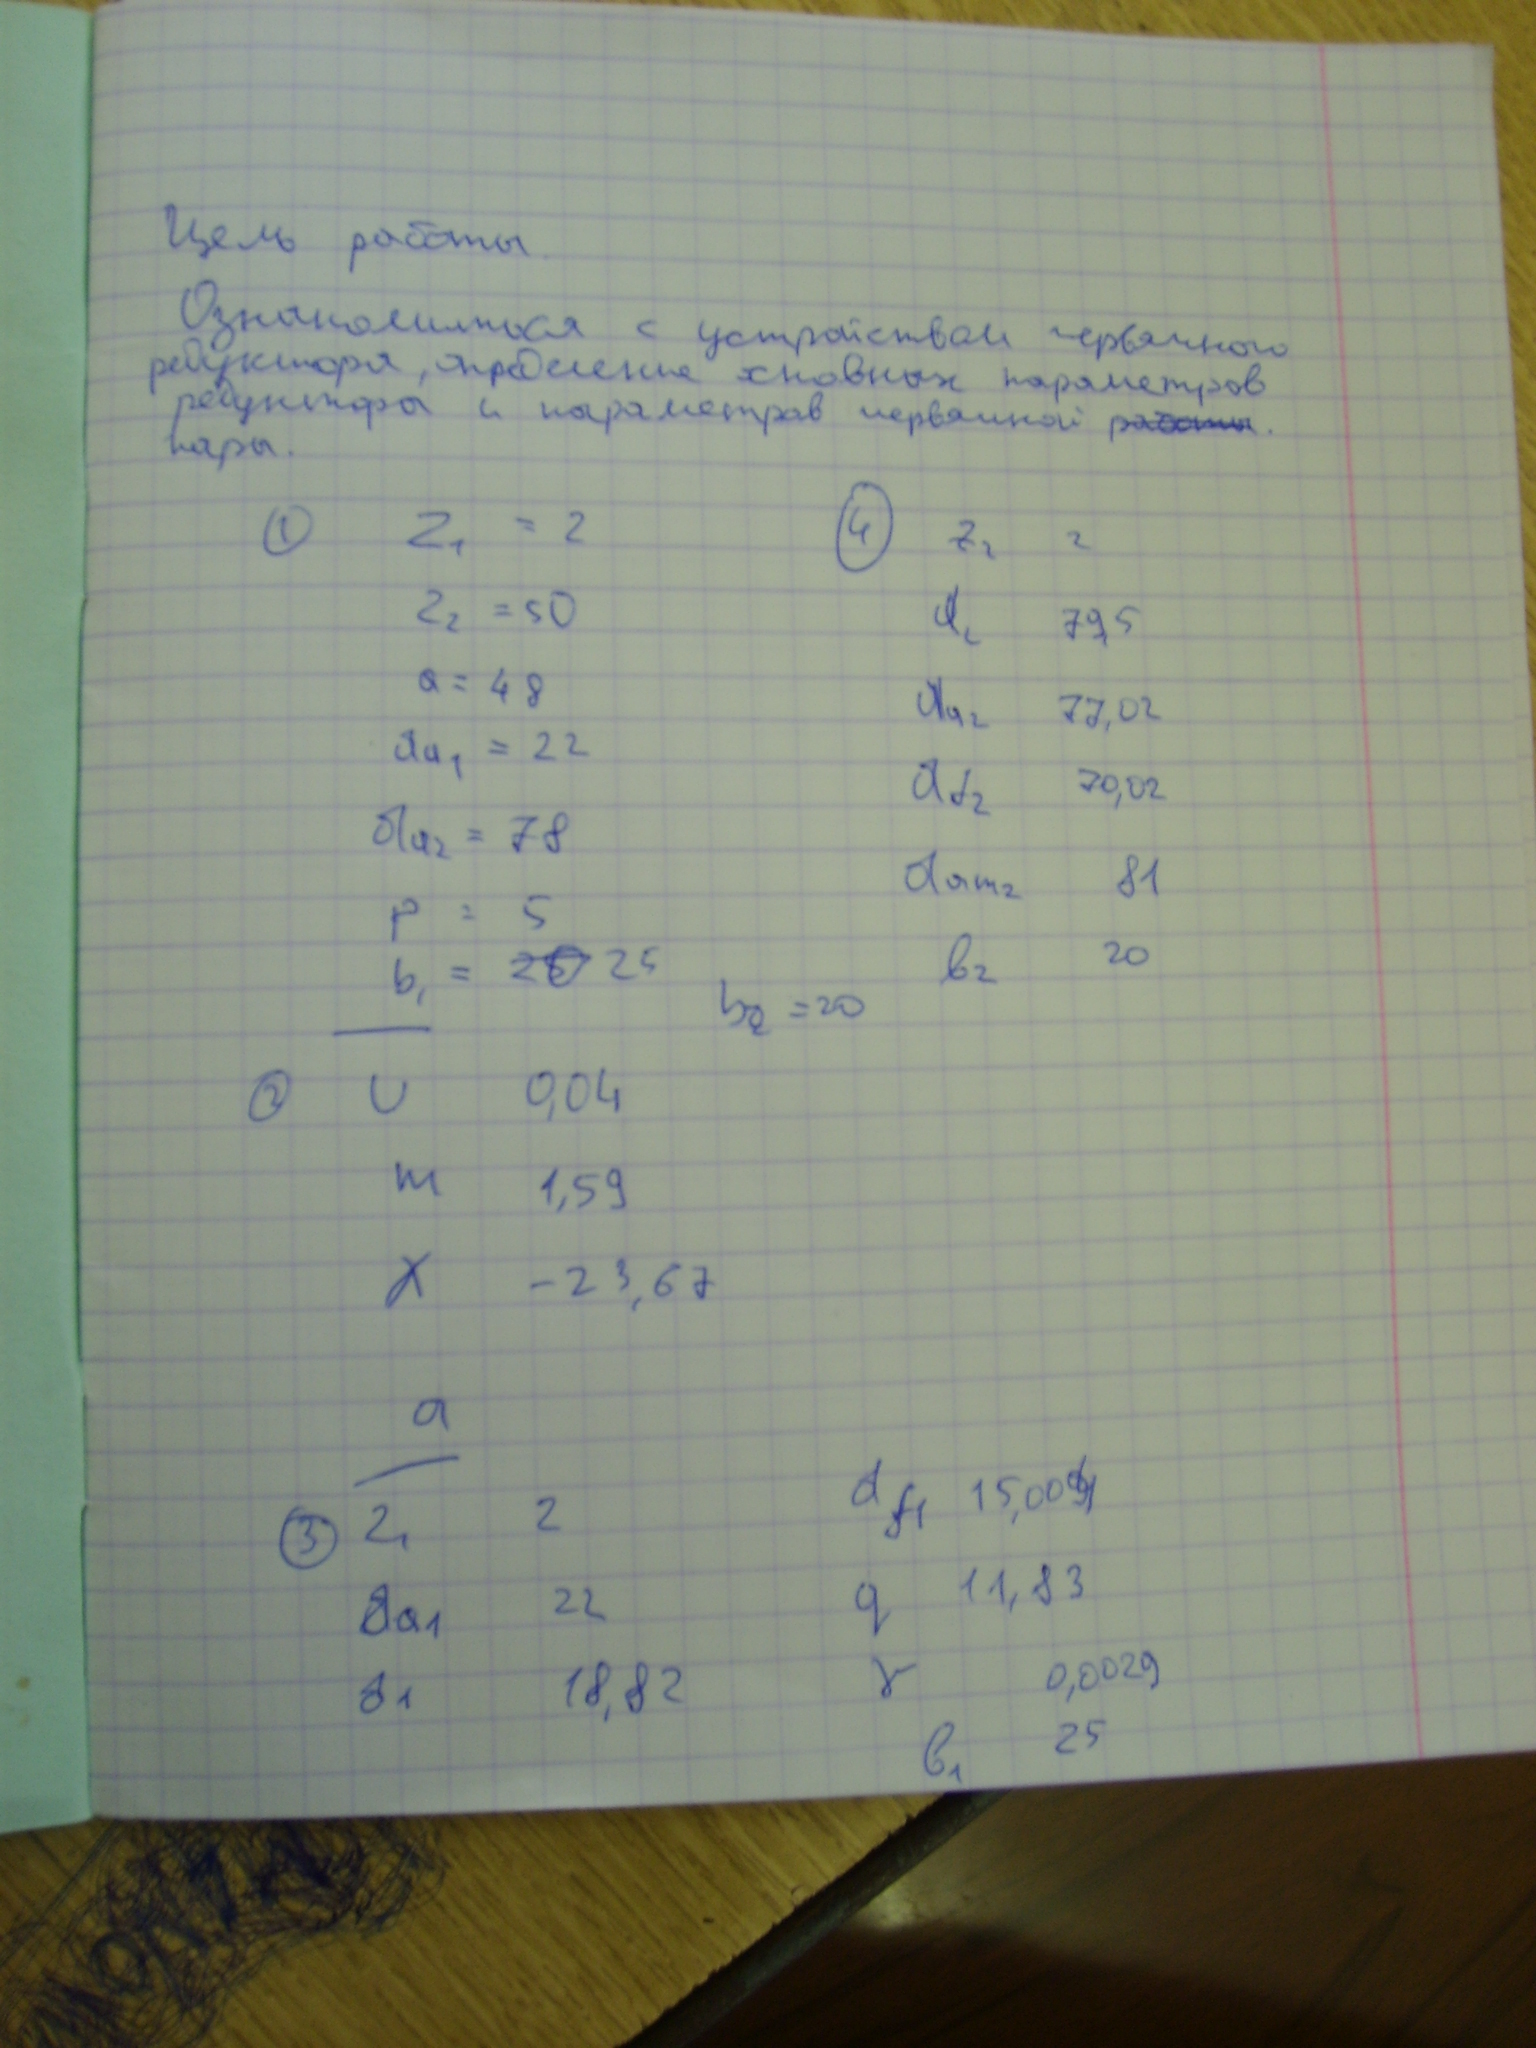 Цель работы.
Ознакомиться с устройством червячного
редуктора, определение основных параметров
редуктора и параметров червячной работы.
пары.
① Z₁ = 2
Z₂ = 50
a = 48
da₁ = 22
da₂ = 78
p = 5
b₁ = 25
b₂ = 20
② U 0,04
m 1,59
X -23,67
a
③ Z₁ 2
da₁ 22
d₁ 18,82
df₁ 15,004
q 11,83
γ 0,0029
b₁ 25
④ Z₂ 2
d₂ 79,5
da₂ 77,02
df₂ 70,02
dam₂ 81
b₂ 20